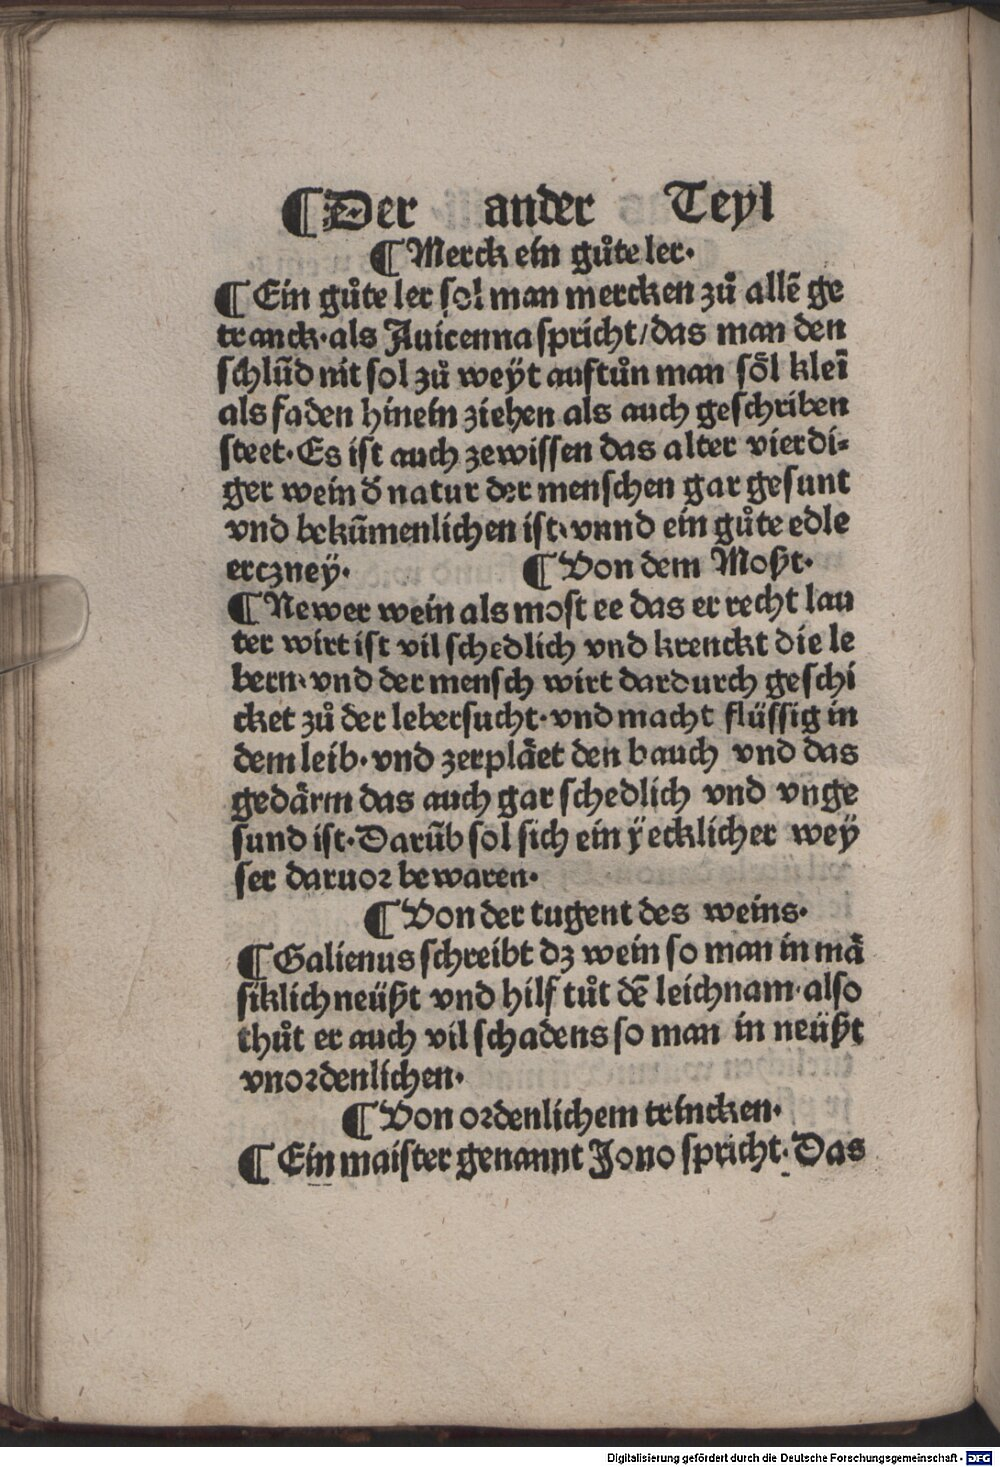 ¶Der ander Teyl
¶Merck ein gůte ler.
¶Ein gůte ler sol man mercken zů allē ge
tranck·als Auicenna spricht/das man den
schlūd nit sol zů weÿt auftůn man sȫl kleī
als faden hinein ziehen als auch geschriben
steet·Es ist auch zewissen das alter vierdi⸗
ger wein đ natur der menschen gar gesunt
vnd bekūmenlichen ist·vnnd ein gůte edle
erczneÿ· ¶Von dem Moßt·
¶Newer wein als most ee das er recht lau
ter wirt ist vil schedlich vnd krenckt die le
bern·vnd der mensch wirt dardurch geschi
cket zů der lebersucht·vnd macht flüssig in
dem leib·vnd zerpläet den bauch vnd das
gedärm das auch gar schedlich vnd vnge
sund ist·Darūb sol sich ein ÿecklicher weÿ
ser daruor bewaren·
¶Von der tugent des weins·
¶Galienus schreibt dz wein so man in mä
siklich neüßt vnd hilf tůt dē leichnam·also
thůt er auch vil schadens so man in neüßt
vnordenlichen·
¶Von ordenlichem trincken·
¶Ein maister genannt Jono spricht·Das
Digitalisierung gefördert durch die Deutsche Forschungsgemeinschaft - DFG